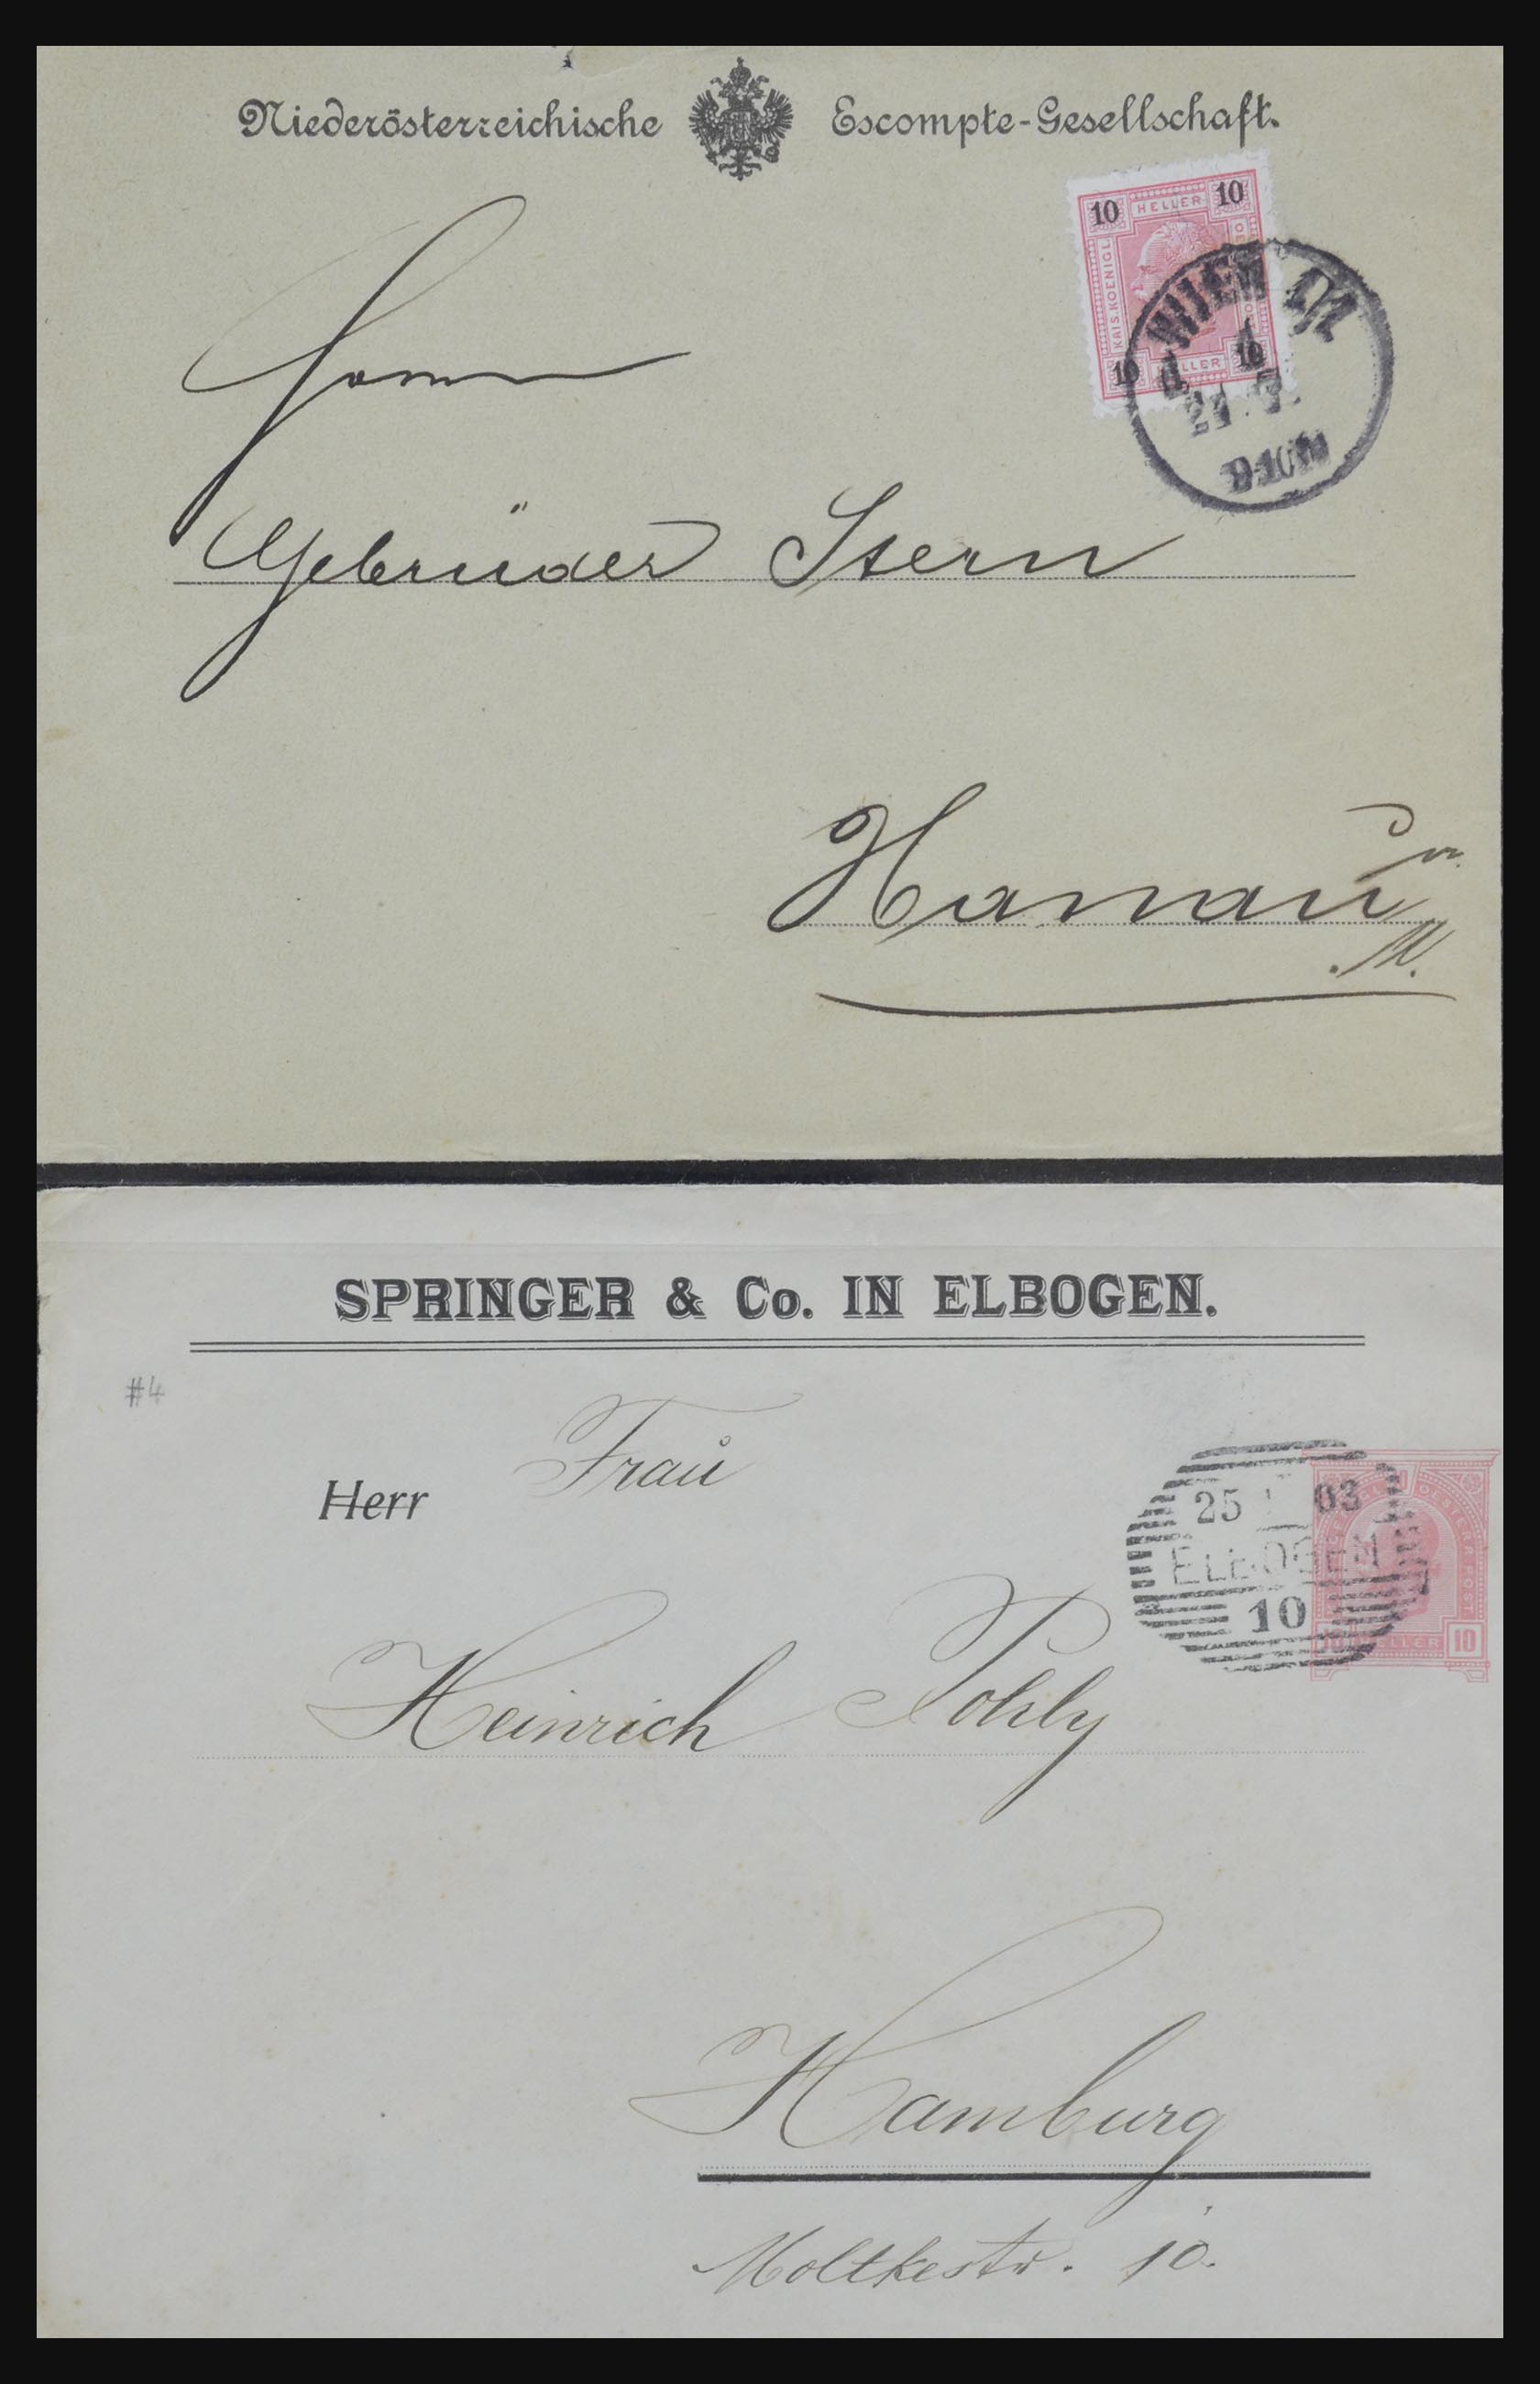 Niederösterreichische Escompte-Gesellschaft.
10 HELLER 10
KAIS. KOENIGL.
10 HELLER 10
WIEN
Gebrüder Stern
Hanau
M.
SPRINGER & Co. IN ELBOGEN.
#4
Frau
Herr
25 03
ELBOGEN
10
HELLER 10
Heinrich Pohly
Hamburg
Moltkestr. 10.